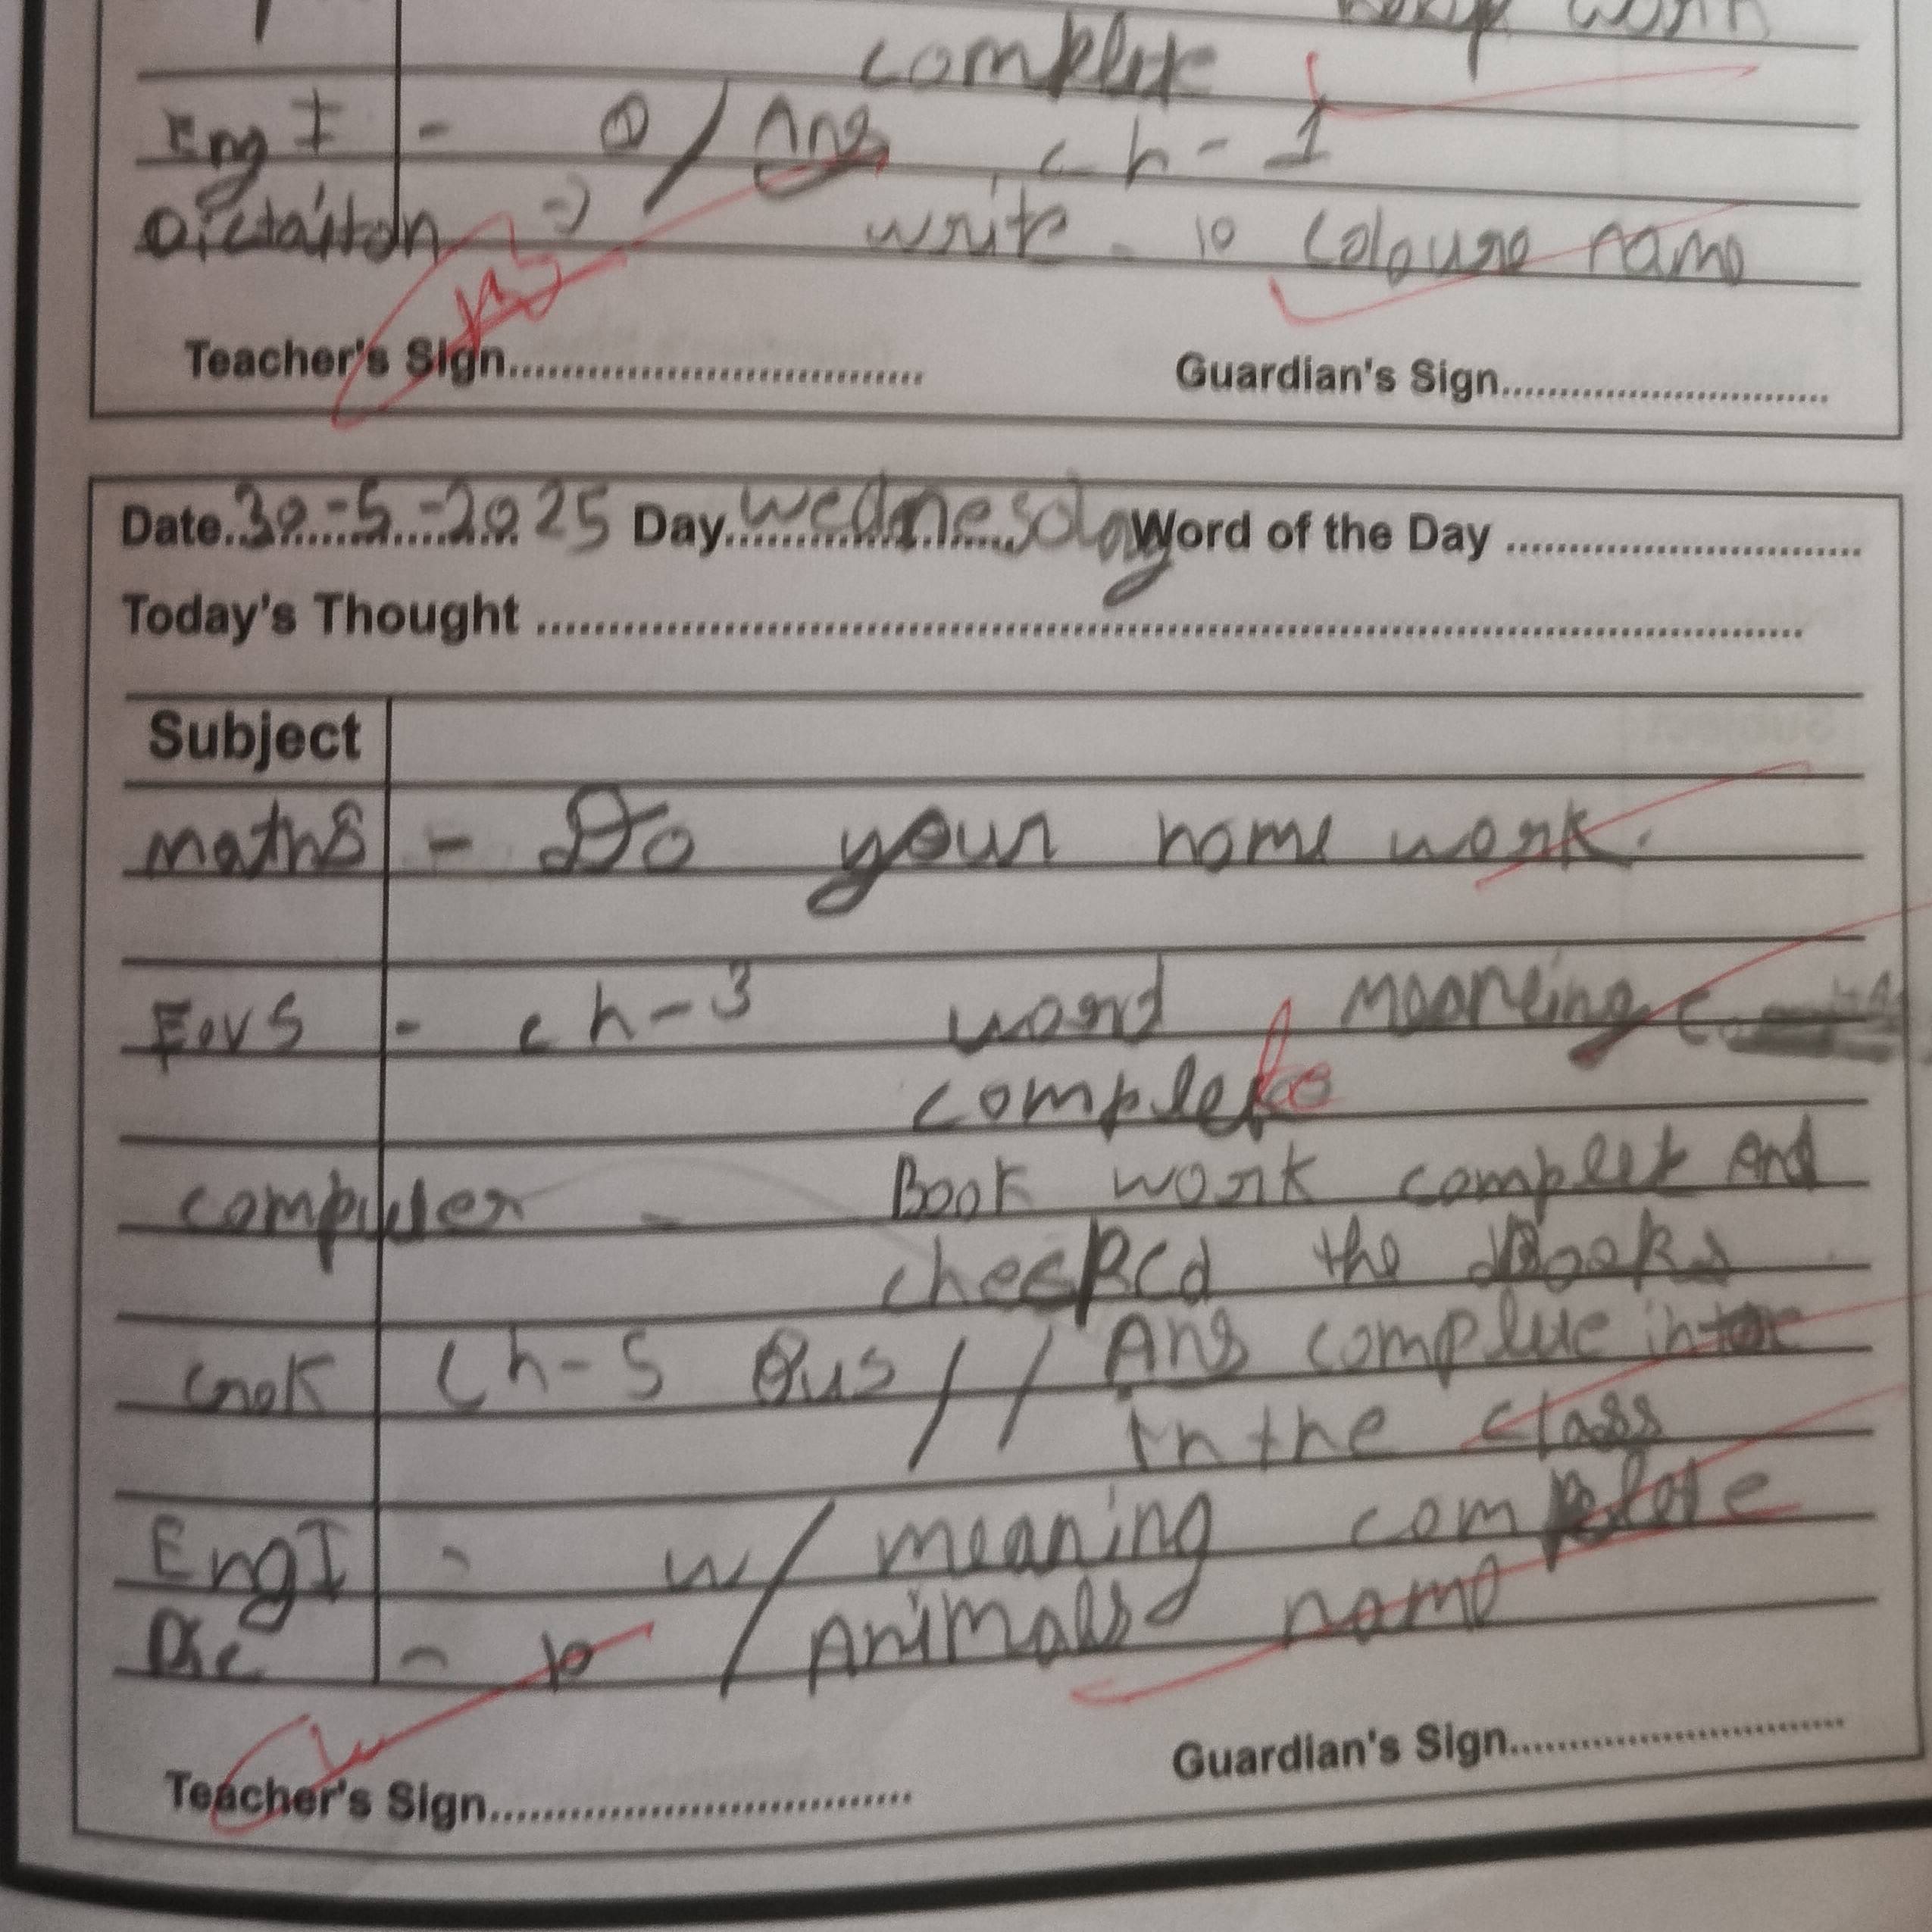 work
complete
Eng I - Q / Ans ch - 1
Dictaiton => write - 10 Coloure name
Teacher's Sign.................... Guardian's Sign....................
Date.30-5-2025 Day.wednesday Word of the Day ....................
Today's Thought ....................
Subject
maths - Do your home work.
Eovs - ch-3 word meaneing
complete
computer - Book work complet And
checked the Books
Ch-5 Qus // Ans complete
in the class
Eng I - w/ meaning complete
Dic - 10 / Animals name
Teacher's Sign.................... Guardian's Sign....................